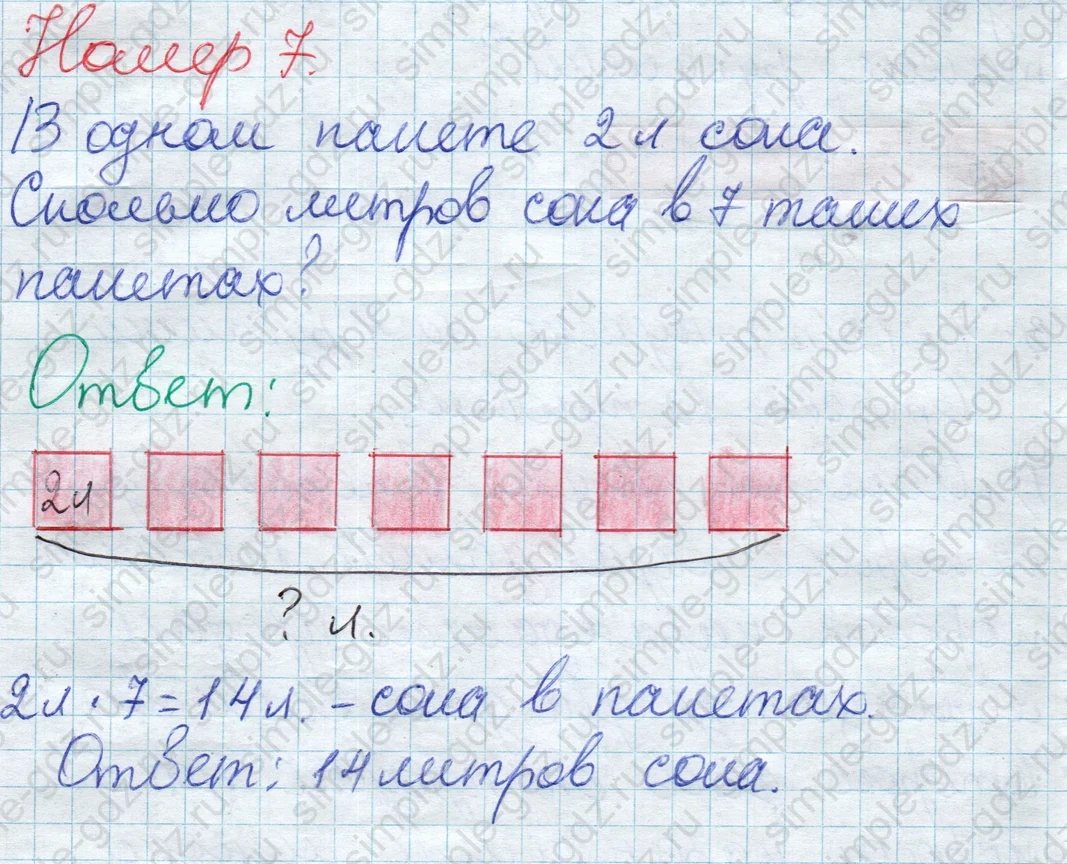 Номер 7.
В одном пакете 2 л сока.
Сколько литров сока в 7 таких
пакетах?
Ответ:
2л
? л.
2л · 7 = 14 л. – сока в пакетах.
Ответ: 14 литров сока.
simple-gdz.ru